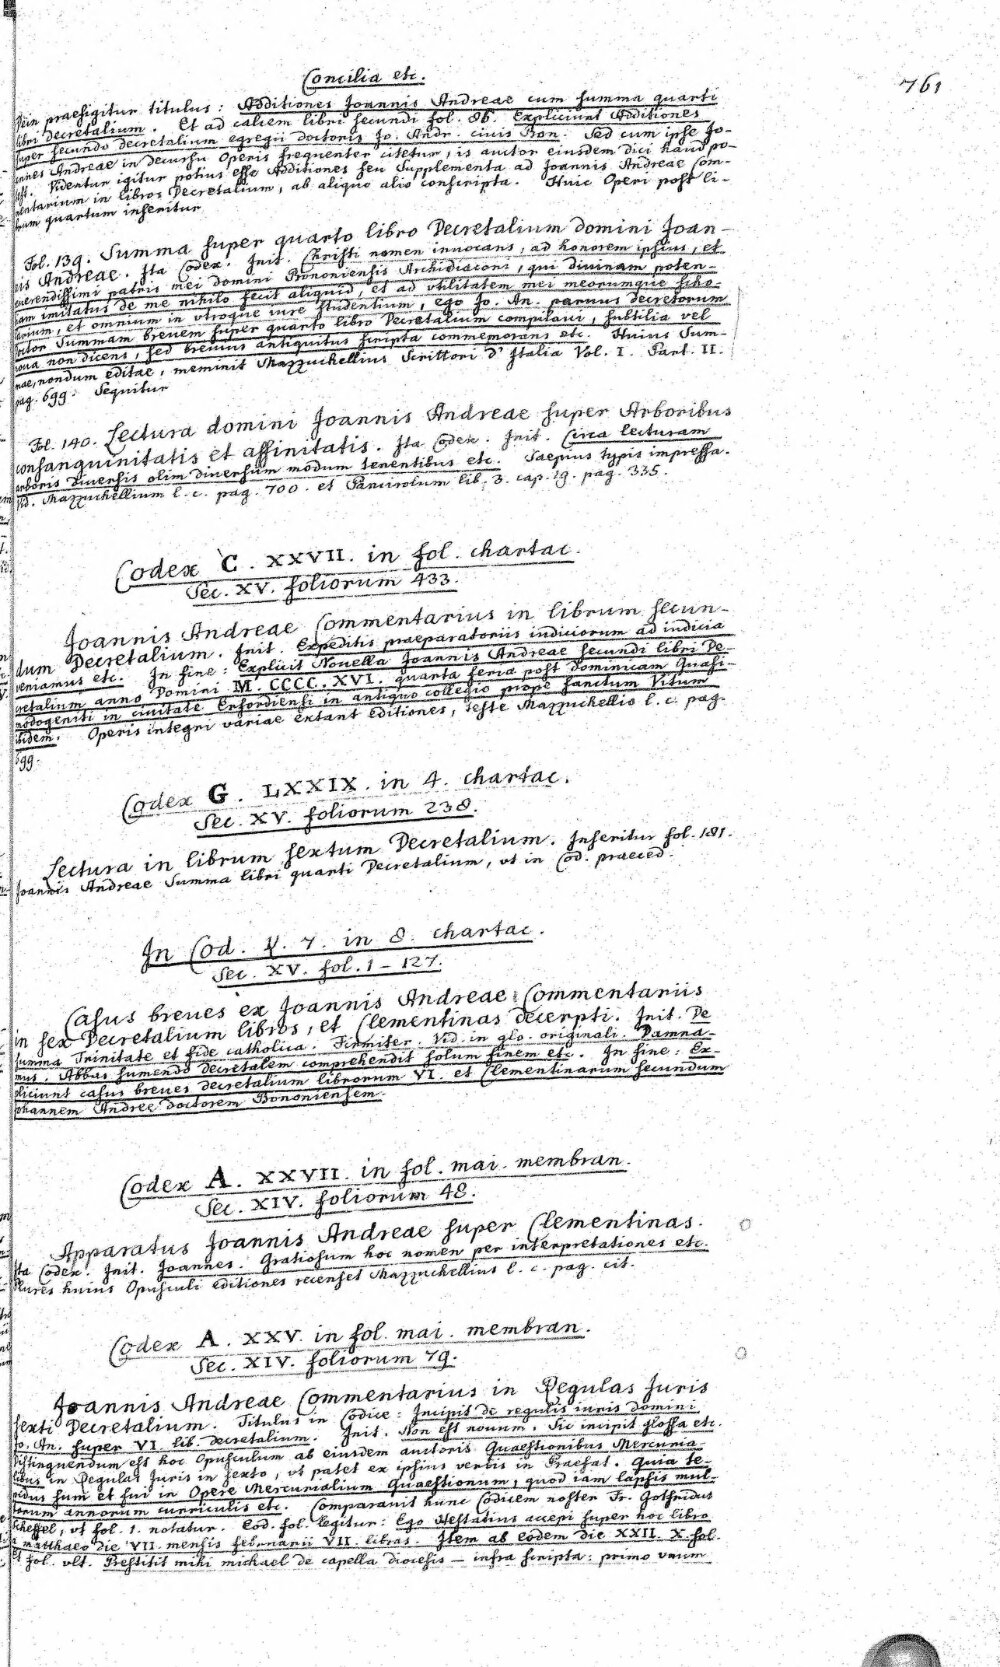 Concilia etc.
761
praefigitur titulus: Additiones Joannis Andreae cum summa quarti
libri decretalium. Et ad calcem libri secundi fol. 86. Expliciunt Additiones
super secundo decretalium egregii doctoris Jo. Andr. civis Bon. Sed cum ipse Jo-
annes Andreae in decursu Operis frequenter citetur, is auctor eiusdem dici haud po-
test. Videntur igitur potius esse Additiones seu Supplementa ad Joannis Andreae Com-
mentarium in libros Decretalium, ab aliquo alio conscripta. Huic Operi post li-
brum quartum inseritur
Fol. 139. Summa super quarto libro Decretalium domini Joan-
nis Andreae. Ita Codex. Init. Christi nomen invocans, ad honorem ipsius, et
reverendissimi patris mei domini Bononiensis Archidiaconi, qui divinam poten-
tiam imitatus de me nihilo fecit aliquid, et ad utilitatem mei meorumque scho-
larium, et omnium in utroque iure studentium, ego Jo. An. parvus decretorum
doctor Summam brevem super quarto libro Decretalium compilavi, subtilia vel
nova non dicens, sed brevius antiquitus scripta commemorans etc. Huius Sum-
mae, nondum editae, meminit Mazzuchellius Scrittori d'Italia Vol. I. Part. II.
pag. 699. Sequitur
Fol. 140. Lectura domini Joannis Andreae super Arboribus
consanguinitatis et affinitatis. Ita Codex. Init. Circa lecturam
arboris diversis olim diversum modum tenentibus etc. Saepius typis impressa.
Vid. Mazzuchellium l. c. pag. 700. et Pancirolum lib. 3. cap. 19. pag. 335.
Codex C. XXVII. in fol. chartac.
Sec. XV. foliorum 433.
Joannis Andreae Commentarius in librum secun-
dum Decretalium. Init. Expeditis praeparatoriis iudiciorum ad iudicia
veniamus etc. In fine: Explicit Novella Joannis Andreae secundi libri De-
cretalium anno Domini M. CCCC. XVI. quarta feria post dominicam Quasi-
modogeniti in civitate Erfordiensi in antiquo collegio prope sanctum Vitum
ibidem. Operis integri variae extant editiones, teste Mazzuchellio l. c. pag.
699.
Codex G. LXXIX. in 4. chartac.
Sec. XV. foliorum 238.
Lectura in librum sextum Decretalium. Inseritur fol. 181.
Joannis Andreae Summa libri quarti Decretalium, ut in Cod. praeced.
In Cod. V. 7. in 8. chartac.
Sec. XV. fol. 1 - 127.
Casus breves ex Joannis Andreae Commentariis
in sex Decretalium libros, et Clementinas decerpti. Init. De
summa Trinitate et fide catholica. Firmiter. Vid. in glo. originali. Damna-
mus. Abbas sumendo decretalem comprehendit solum finem etc. In fine: Ex-
pliciunt casus breves decretalium librorum VI. et Clementinarum secundum
Johannem Andree doctorem Bononiensem.
Codex A. XXVII. in fol. mai. membran.
Sec. XIV. foliorum 48.
Apparatus Joannis Andreae super Clementinas.
Ita Codex. Init. Joannes. Gratiosum hoc nomen per interpretationes etc.
Plures huius Opusculi editiones recenset Mazzuchellius l. c. pag. cit.
Codex A. XXV. in fol. mai. membran.
Sec. XIV. foliorum 79.
Joannis Andreae Commentarius in Regulas Juris
sexti Decretalium. Titulus in Codice: Incipit de regulis iuris domini
Jo. An. super VI. lib. decretalium. Init. Non est novum. Sic incipit glossa etc.
Distinguendum est hoc Opusculum ab eiusdem auctoris Quaestionibus Mercuria-
libus in Regulas Juris in sexto, ut patet ex ipsius verbis in Praefat. Quia te-
pidus sum et fui in Opere Mercurialium Quaestionum, quod iam lapsis mul-
torum annorum curriculis etc. Comparavit hunc Codicem noster Fr. Gotfridus
Scheffel, ut fol. 1. notatur. Eod. fol. legitur: Ego Hestatius accepi super hoc libro
a matthaeo die VII. mensis februarii VII. libras. Item ab eodem die XXII. X. sol.
Et fol. ult. Prestitit mihi michael de capella diocesis — infra scripta: primo unum